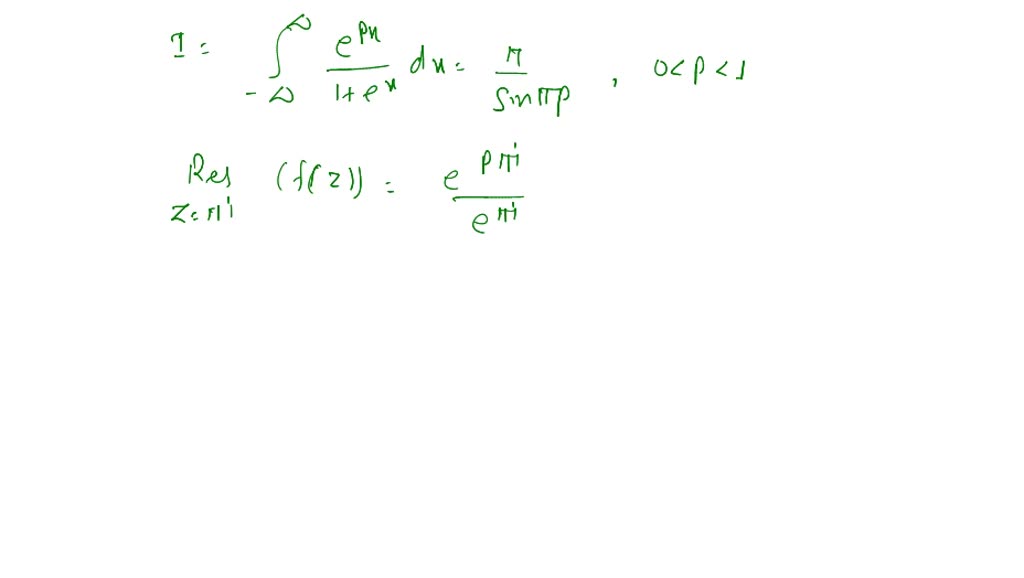 I = ∫_{-∞}^{∞} \frac{e^{px}}{1+e^x} dx = \frac{π}{sin πp} , 0 < p < 1
Res_{z=πi} (f(z)) = \frac{e^{pπi}}{e^{πi}}